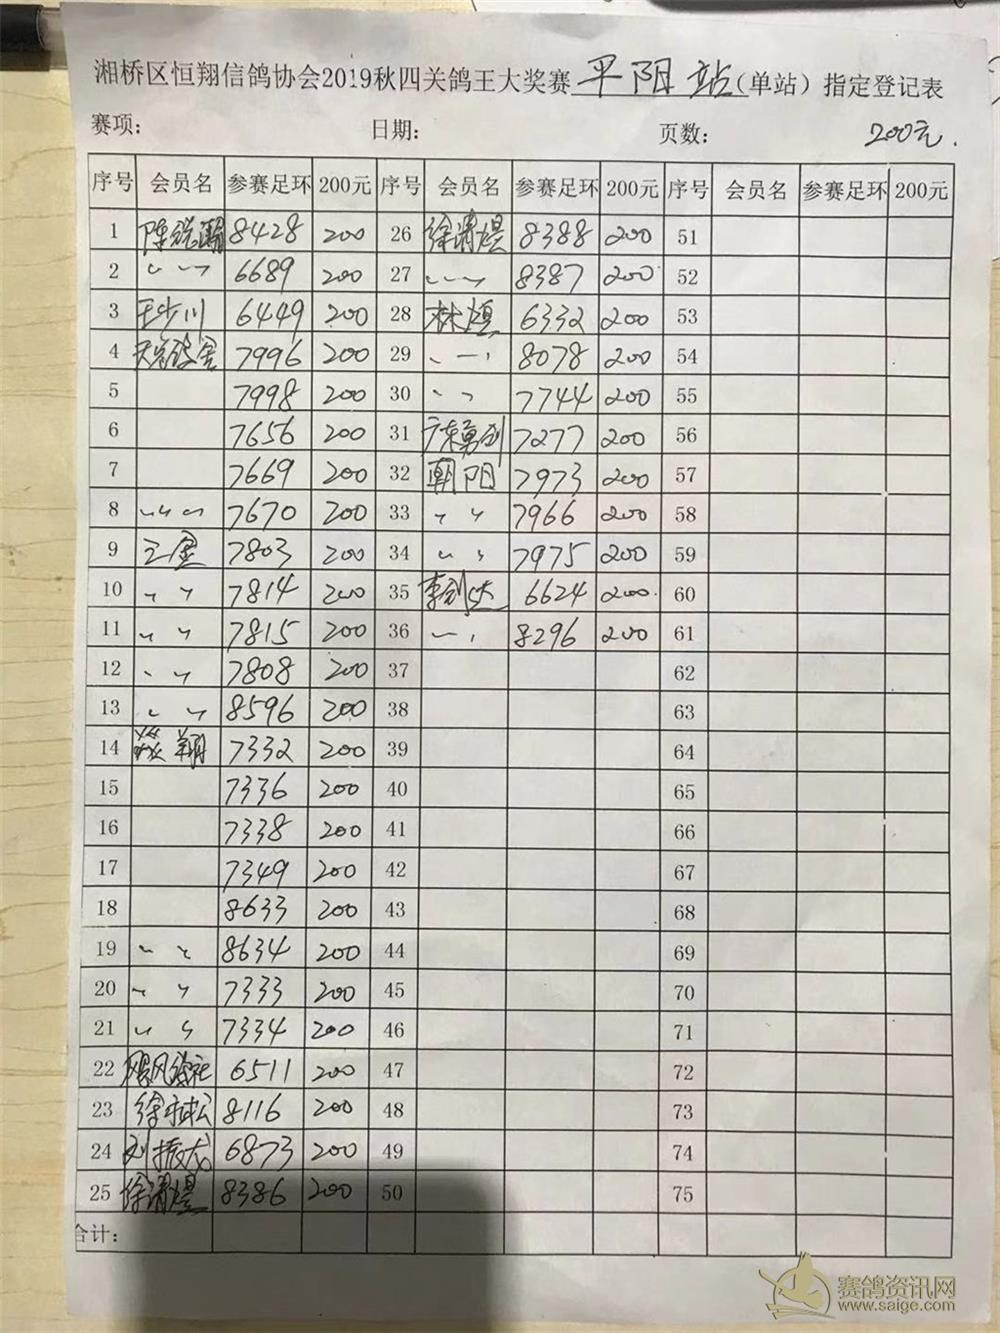 湘桥区恒翔信鸽协会2019秋四关鸽王大奖赛平阳站(单站)指定登记表
赛项: 日期: 页数: 200元.
序号 会员名 参赛足环 200元 序号 会员名 参赛足环 200元 序号 会员名 参赛足环 200元
1 8428 200 26 徐清煜 8388 200 51
2 〃 〃 6689 200 27 〃 〃 8387 200 52
3 6449 200 28 6332 200 53
4 7996 200 29 〃 〃 8078 200 54
5 7998 200 30 〃 〃 7744 200 55
6 7656 200 31 7277 200 56
7 7669 200 32 朝阳 7973 200 57
8 〃 〃 7670 200 33 〃 〃 7966 200 58
9 7803 200 34 〃 〃 7975 200 59
10 〃 〃 7814 200 35 6624 200 60
11 〃 〃 7815 200 36 〃 8296 200 61
12 〃 〃 7808 200 37 62
13 〃 〃 8596 200 38 63
14 7332 200 39 64
15 7336 200 40 65
16 7338 200 41 66
17 7349 200 42 67
18 8633 200 43 68
19 〃 〃 8634 200 44 69
20 〃 〃 7333 200 45 70
21 〃 〃 7334 200 46 71
22 6511 200 47 72
23 8116 200 48 73
24 刘振龙 6873 200 49 74
25 徐清煜 8386 200 50 75
合计:
赛鸽资讯网
www.saige.com